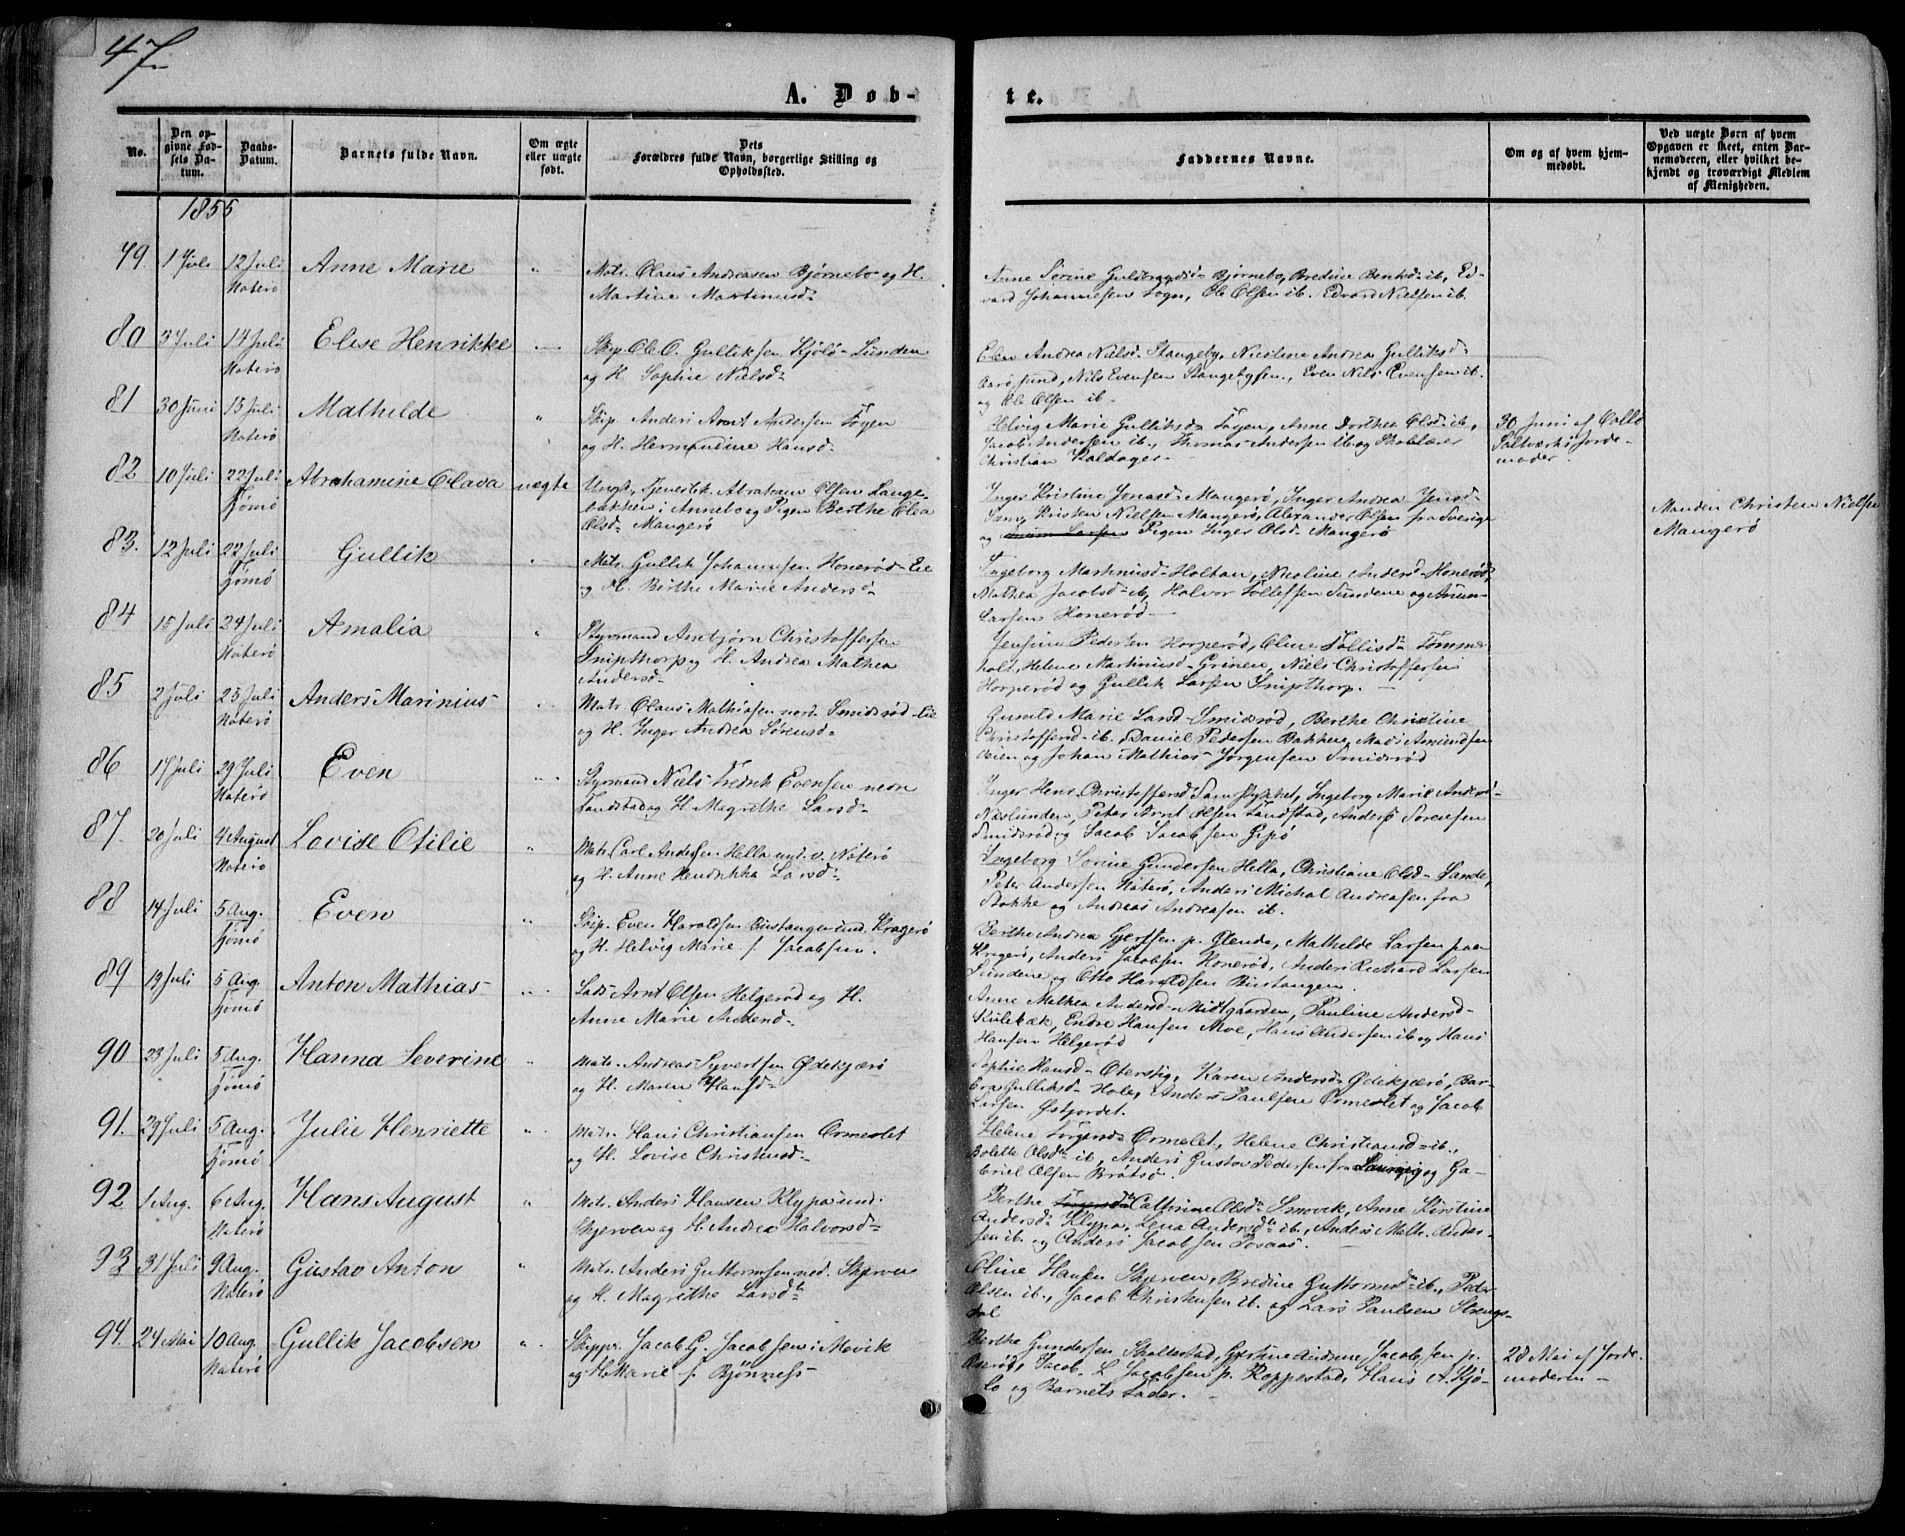 47.
A. Døb-
te.
No.
Den op-
givne Fød-
sels Da-
tum.
Daabs-
Datum.
Barnets fulde Navn.
Om ægte
eller uægte
født.
Dets
Forældres fulde Navn, borgerlige Stilling og
Opholdssted.
Faddernes Navne.
Om og af hvem hjem-
medøbt.
Ved uægte Børn af hvem
Opgaven er skeet, enten Bar-
nemoderen, eller hvilket be-
kjendt og troværdigt Medlem
af Menigheden.
1855
79. 1 Juli 12 Juli Anne Marie " Matr. Claus Andreasen Bjørnebo og H.
Nøterø Martine Martinusd-
Anne Sørine Guldbrandsd- Bjørnebo, Bredine Bentsd- ib, Ed-
vard Johannesen Sogn, Ole Olsen ib. Edvard Nielsen ib.
80 3 Juli 14 Juli Elise Henrikke — Skip. Ole O. Gulliksen Kjølø-Sunden
Nøterø og H. Sophie Nielsd-
Elen Andrea Nielsd- Stangeby, Nicoline Andrea Gulliksd-
Aarøsund, Nils Evensen Stangebyeen, Even Nils Evensen ib.
og Ole Olsen ib-
81 30 Juni 15 Juli Mathilde " Skip. Anders Arnt Andersen Føyen
Nøterø og H. Hermandine Hansd-
Helvig Marie Gulliksd- Føyen, Anne Dorthea Olsd- ib.,
Jacob Andersen ib., Thomas Andersen ib og Skolelærer
Christian Kaldager-
30 Juni af
Jorde-
moder.
82 10 Juli 22 Juli Abrahamine Olava uægte Ungk. Tjenestek. Abraham Olsen Lange-
Tjømø bakken i Annebo og Pigen Berthe Olea
Olsd- Mangerø
Inger Kristine Jonasd- Mangerø, Inger Andrea Jensd-
Sem, Kristen Nielsen Mangerø, Alexander Olsen fra Sverige
og Pigen Inger Olsd- Mangerø
Manden Christen Nielsen
Mangerø
83. 12 Juli 22 Juli Gullik " Matr. Gullik Johannesen Honerød-Eie
Tjømø og H. Birthe Marie Andersd-
Ingeborg Martinusd- Holtan, Nicoline Andersd- Honerød,
Mathea Jacobsd- ib, Halvor Tollefsen Sundene og Anun
Larsen Honerød-
84 15 Juli 24 Juli Amalia " Styrmand Anbjørn Christoffersen
Nøterø Snipthorp og H. Andrea Mathea
Andersd-
Jensine Pedersen Horperød, Oline Tollisd- Tomme-
holt, Helene Martinusd- Grinen, Niels Christoffersen
Horperød og Gullik Larsen Snipthorp. —
85 2 Juli 25 Juli Anders Marinius " Matr Claus Mathiasen nord. Smidsrød-Eie
Nøterø og H. Inger Andrea Sørensd-
Gunild Marie Larsd- Smidsrød, Berthe Christine
Christoffersd- ib., Daniel Pedersen Bakken, Mads Amundsen
Veien og Johan Mathias Jørgensen Smidsrød
86 17 Juli 29 Juli Even " Styrmand Niels Fredrik Evensen nedr
Nøterø Sandstad og H. Magrethe Larsd-
Inger Hens. Christoffersd- Samstykket, Ingeborg Marie Andersd-
Næslunden, Peter Arnt Olsen Sandstad, Anders Sørensen
Smidsrød og Jacob Jacobsen Gipø
87. 20 Juli 4 August Lovise Otilie " Matr. Carl Andersen Hella und. v. Nøterø
Nøterø og H. Anne Hendrikka Larsd-
Ingeborg Sørine Gundersen Hella, Christiane Olsd- Sande,
Peter Andersen Nøterø, Anders Michal Andreasen fra
Stokke og Andreas Andreasen ib.
88 14 Juli 5 Aug. Even " Skip. Even Haraldsen Bustangen und. Kragerø
Tjømø og H. Helvig Marie f. Jacobsen.
Berthe Andrea Gjertsen p. Glende, Mathilde Larsen paa
Kragerø, Anders Jacobsen Honerød, Anders Richard Larsen
Sundene og Otto Haraldsen Bustangen.
89 19 Juli 5 Aug. Anton Mathias " Lods Arnt Olsen Helgerød og H.
Tjømø Anne Marie Andersd-
Anne Mathea Andersd- Midtgaarden, Pauline Andersd-
Kulebæk, Endre Hansen Moe, Hans Andersen ib og Hans
Hansen Helgerød
90 23 Juli 5 Aug. Hanna Severine " Matr. Andreas Syvertsen Ødekjærø
Tjømø og H. Maren Hansd-
Sophie Hansd- Oterstig, Karen Andersd- Ødekjærø, Bar-
bra Gulliksd- Hole, Anders Paulsen Ormelet og Jacob
Larsen Østjordet.
91. 29 Juli 5 Aug. Julie Henriette " Matr. Hans Christiansen Ormelet
Tjømø og H. Lovise Christensd-
Helene Jørgensd- Ormelet, Helene Christiansd- ib.,
Bolette Olsd- ib, Anders Gustav Pedersen fra Laurvig og Ga-
briel Olsen Brøtsø.
92 1 Aug. 6 Aug. Hans August " Matr. Anders Hansen Klypa und.
Nøterø Skjerven og H. Andrea Halvorsd-
Berthe Cathrine Olsd- Smovik, Anne Kirstine
Andersd- Klypa, Lena Andersd- ib, Anders Math. Ander-
sen ib. og Anders Jacobsen
93 31 Juli 9 Aug. Gustav Anton " Matr. Anders Guttormsen ned. Skjerven
Nøterø og H. Magrethe Larsd-
Oline Hansen Skjerven, Bredine Guttormsd- ib., Peder
Olsen ib., Jacob Christensen ib. og Lars Paulsen Strengs-
dal
94. 24 Mai 10 Aug. Gullik Jacobsen " Skipp. Jacob G. Jacobsen i Movik
Nøterø og H. Marie f. Bjønness
Berthe Gundersen Skallestad, Jacobsen p.
Jacob L Jacobsen p. Roppestad, Hans A. Kjø-
lø og Barnets Fader. -
28 Mai af Jorde-
moderen-